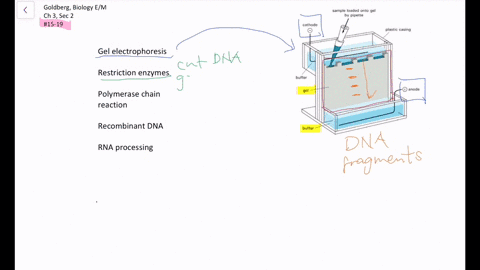 Goldberg, Biology E/M
Ch 3, Sec 2
#15-19
Gel electrophoresis
Restriction enzymes
cut DNA
g
Polymerase chain
reaction
Recombinant DNA
RNA processing
sample loaded onto gel
by pipette
cathode
plastic casing
buffer
gel
anode
buffer
DNA
fragments